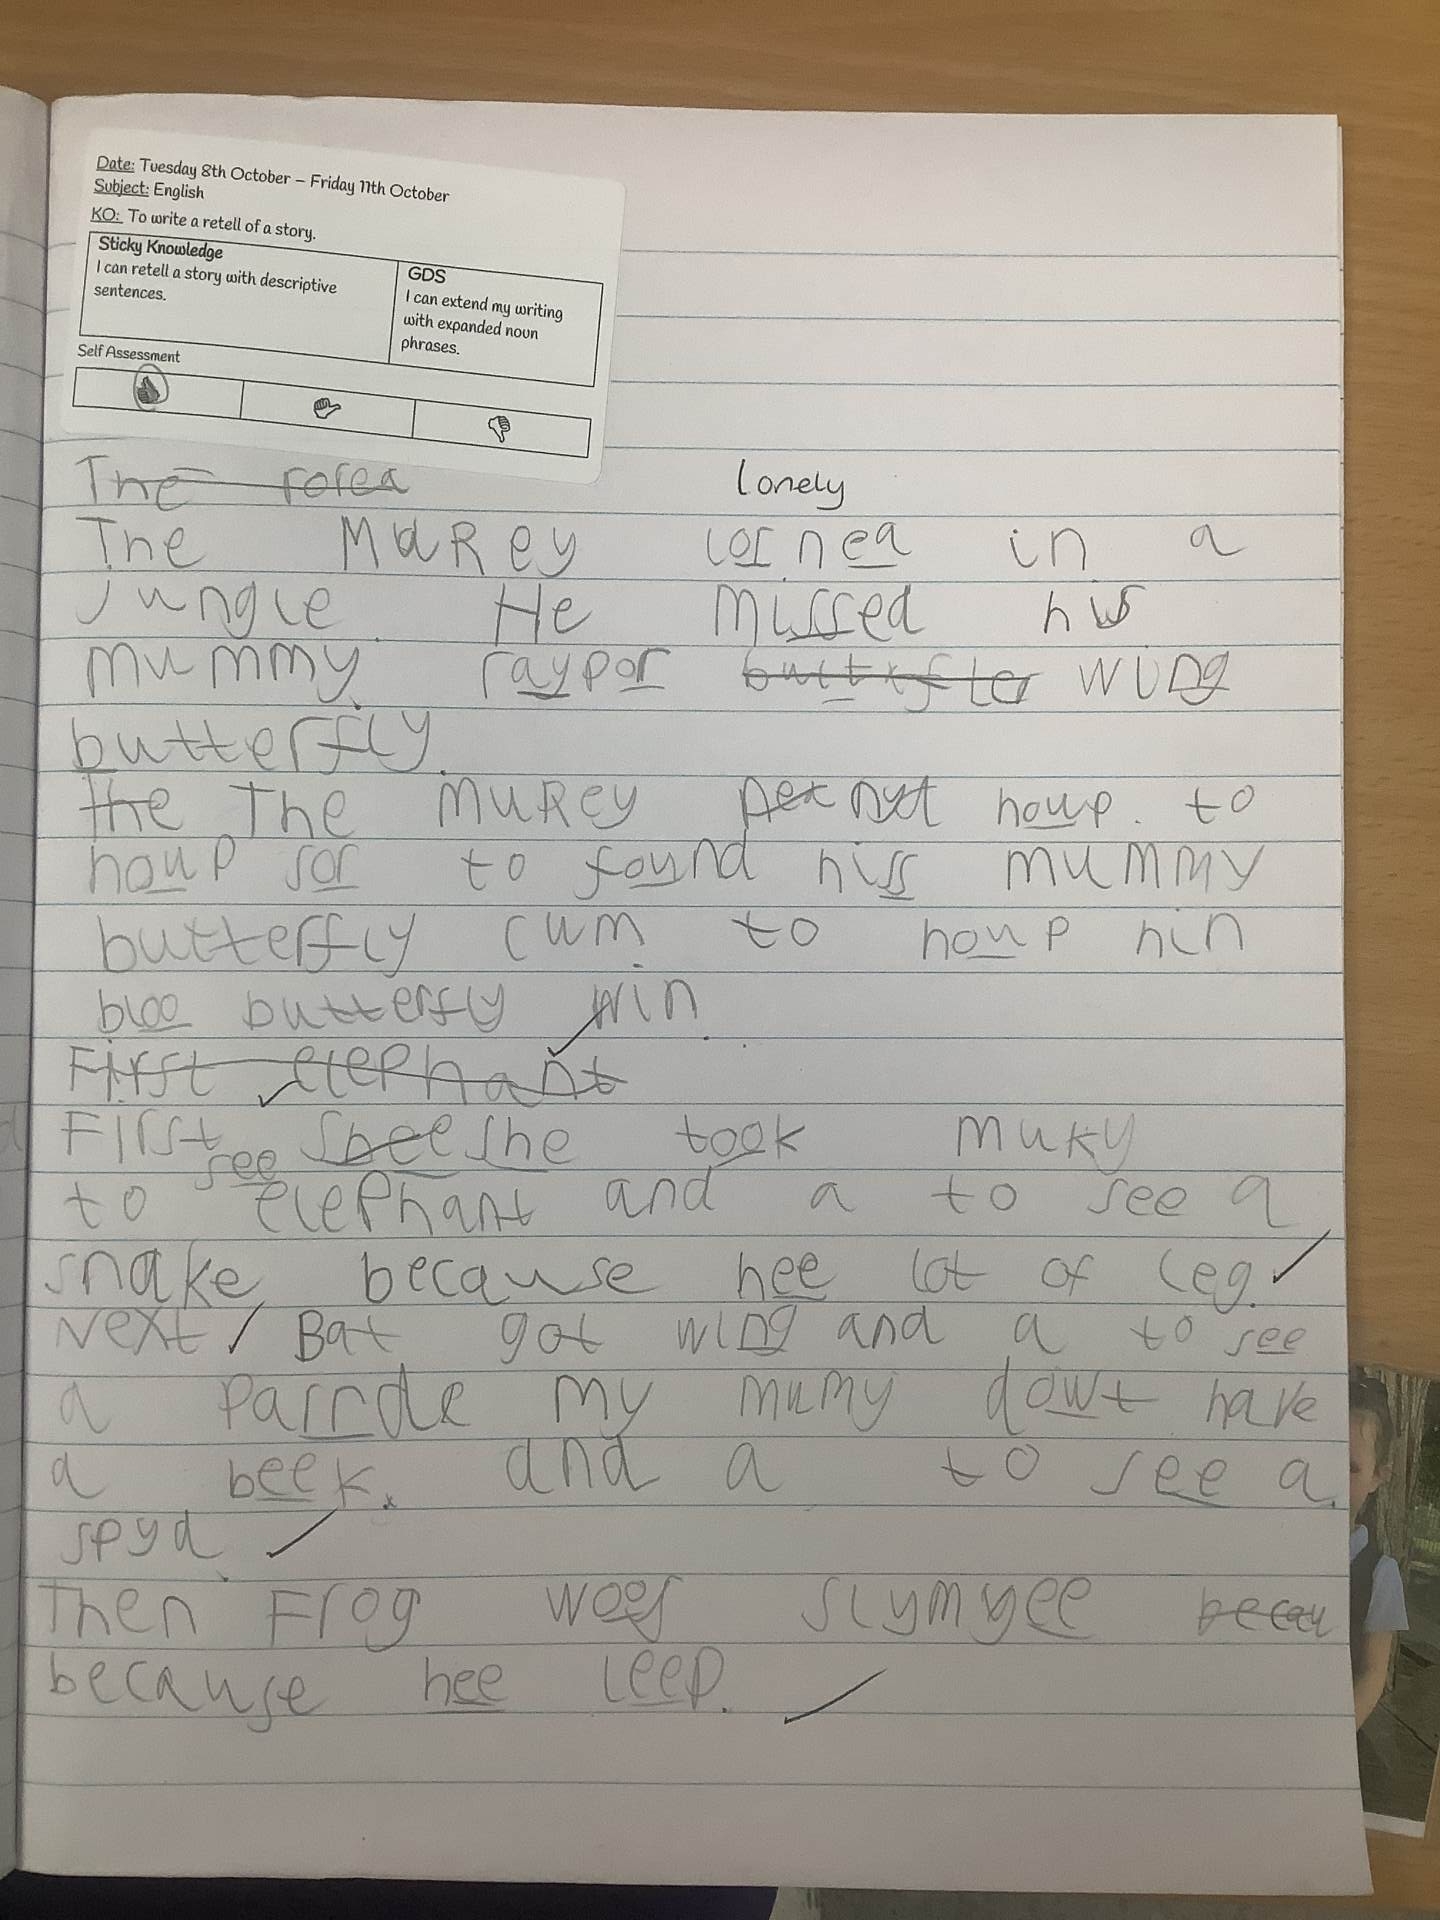 Date: Tuesday 8th October – Friday 11th October
Subject: English
KO: To write a retell of a story.
Sticky Knowledge
I can retell a story with descriptive
sentences.
GDS
I can extend my writing
with expanded noun
phrases.
Self Assessment
The
lonely
The MaRey cornea in a
Jungle. He missed his
mummy. raypor wing
butterfly.
the The MuRey nyt houp. to
houp sor to found hiss mummy
butterfly cum to houp hin
bloo butterfly win.
First elephant
First she took muky
see
to elephant and a to see a
snake because hee lot of leg.
Next Bat got wing and a to see
a parrde my mumy dowt have
a beek. and a to see a.
spyd.
Then Frog woes slymyee becau
because hee leep.